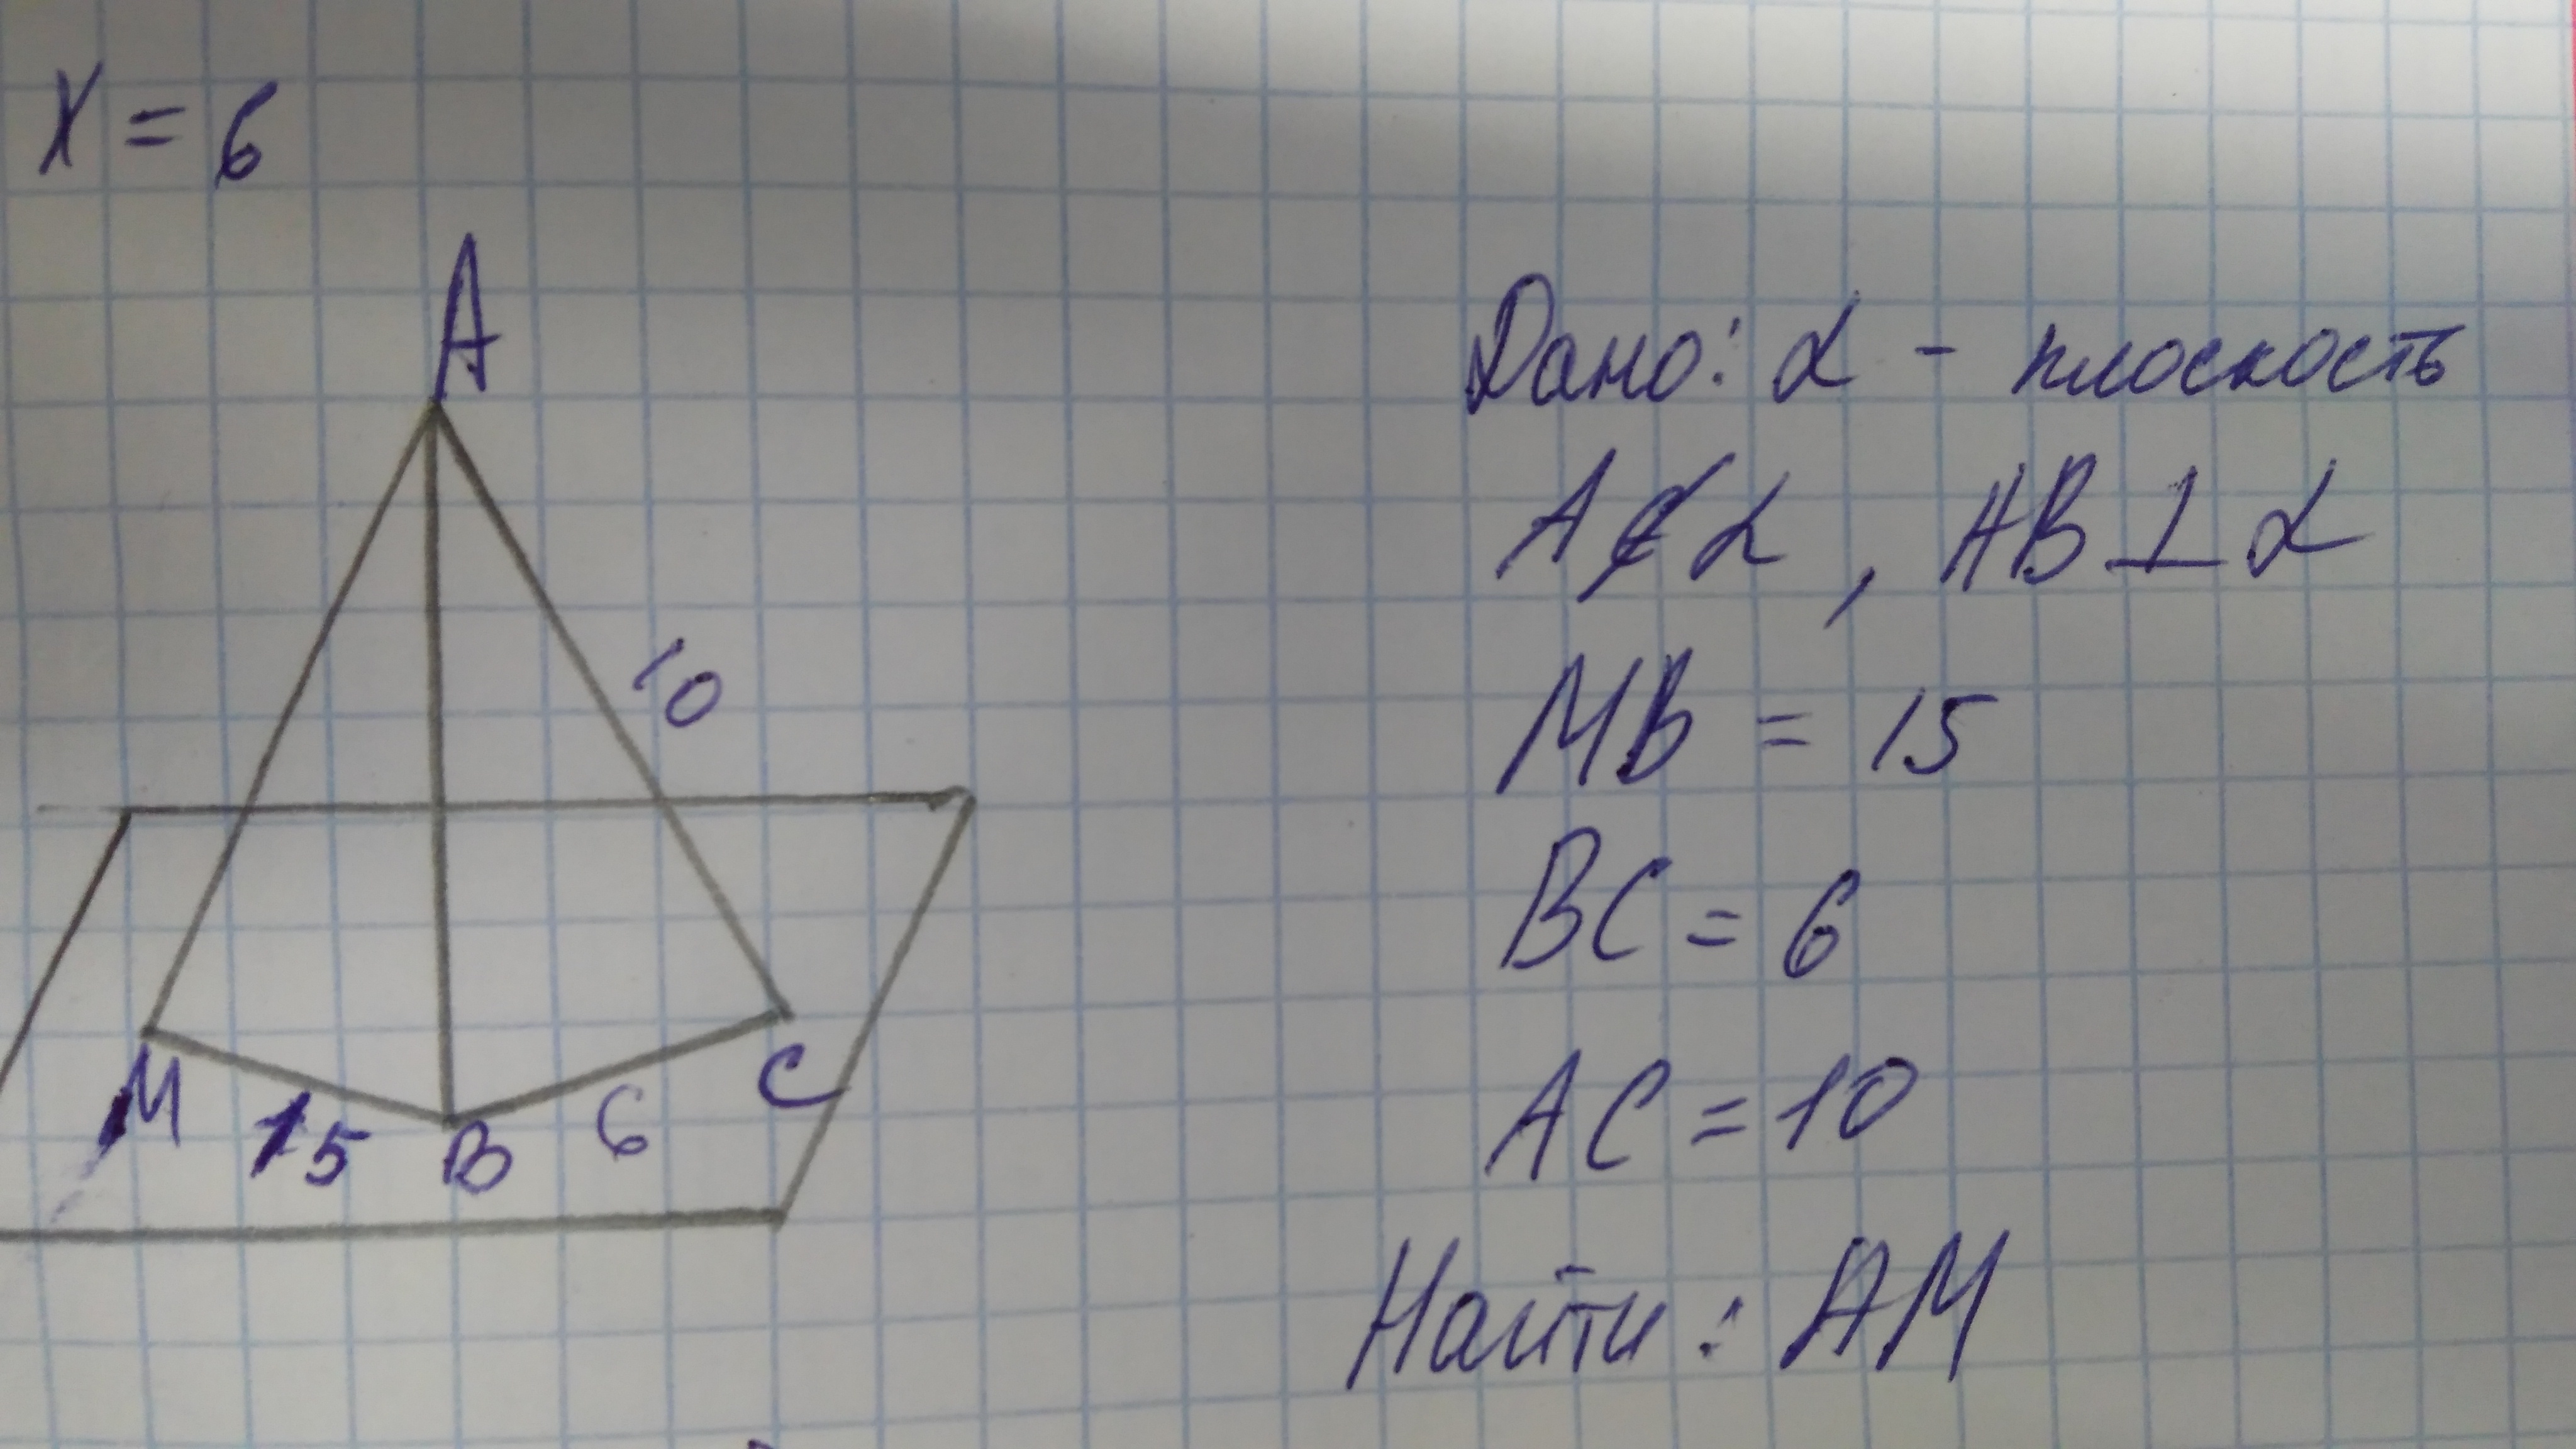 X = 6
A
10
M
15
B
6
C
Дано: α - плоскость
A ∉ α , AB ⊥ α
MB = 15
BC = 6
AC = 10
Найти : AM